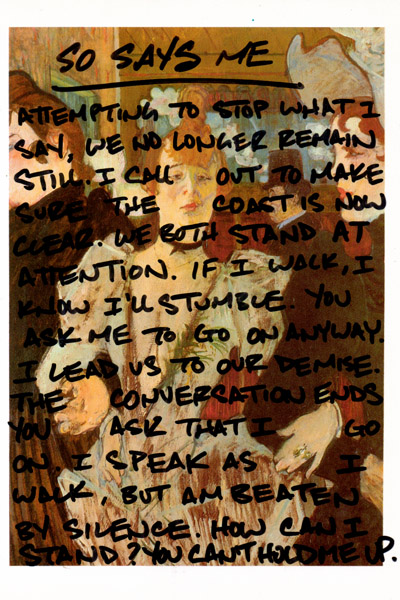 SO SAYS ME
ATTEMPTING TO STOP WHAT I
SAY, WE NO LONGER REMAIN
STILL. I CALL OUT TO MAKE
SURE THE COAST IS NOW
CLEAR. WE BOTH STAND AT
ATTENTION. IF I WALK, I
KNOW I'LL STUMBLE. YOU
ASK ME TO GO ON ANYWAY.
I LEAD US TO OUR DEMISE.
THE CONVERSATION ENDS
YOU ASK THAT I GO
ON. I SPEAK AS I
WALK, BUT AM BEATEN
BY SILENCE. HOW CAN I
STAND? YOU CAN'T HOLD ME UP.